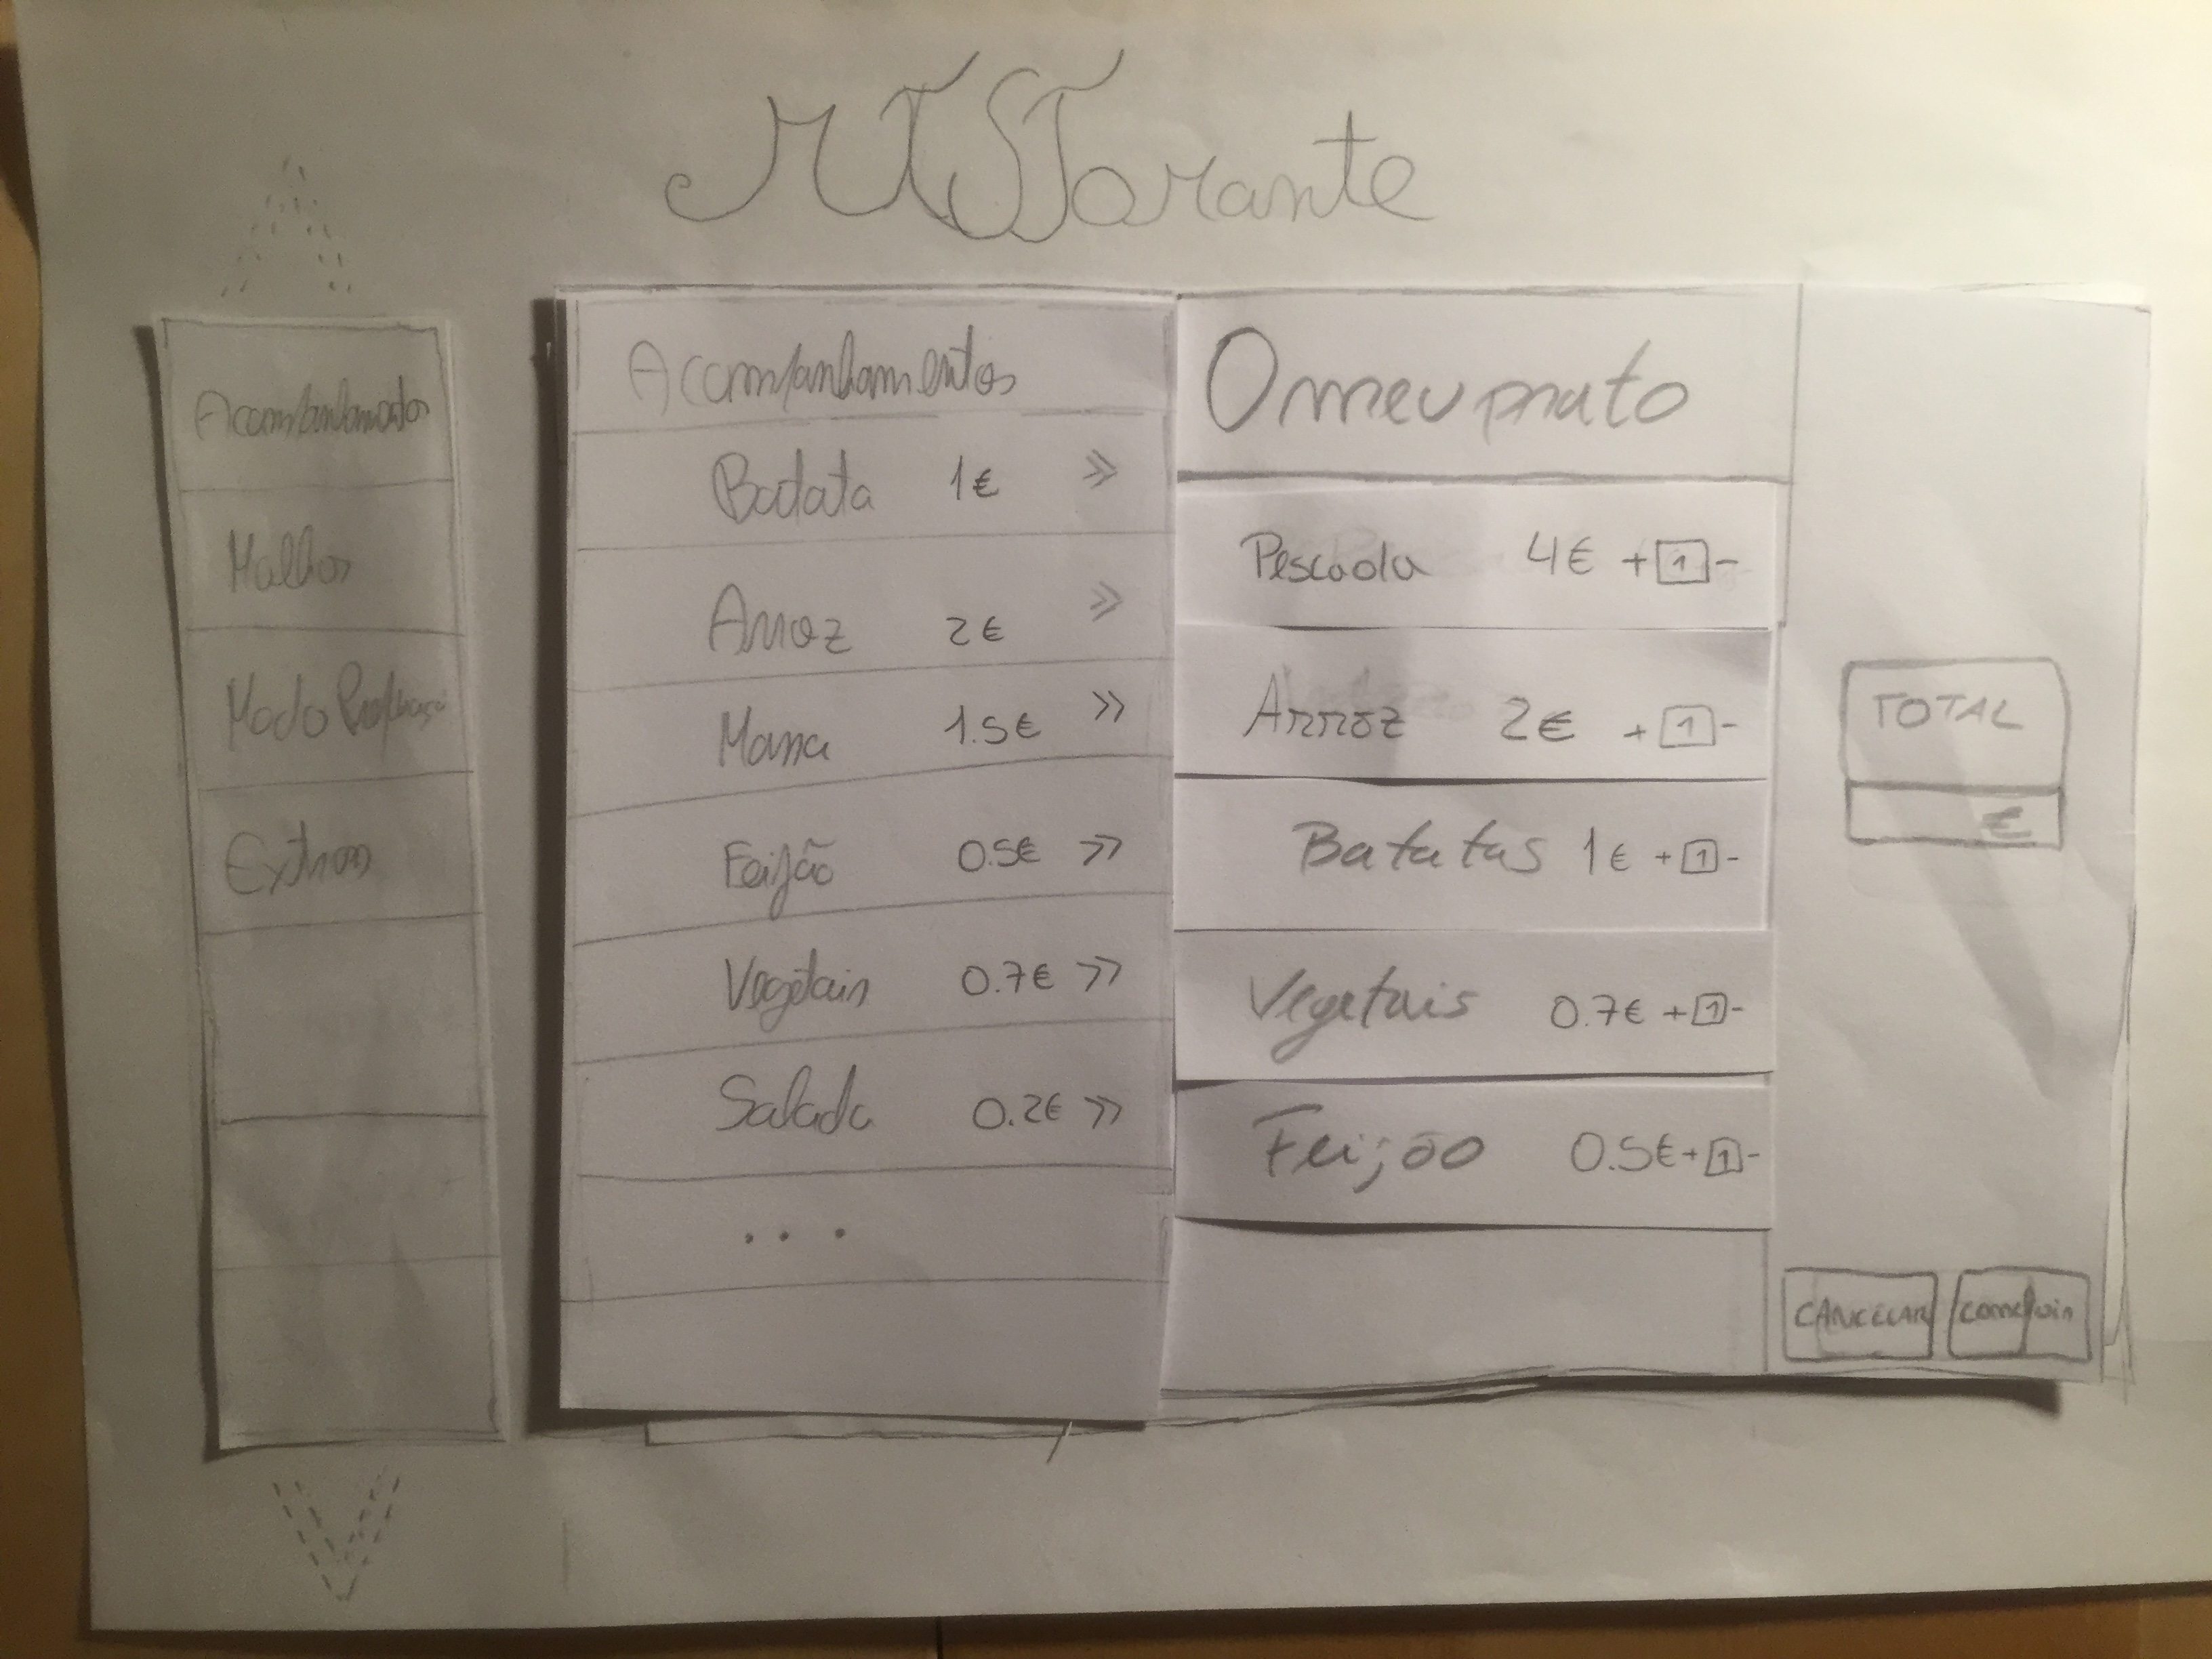 Acompanhamentos
Molhos
Modo
Extras
Acompanhamentos
Batata 1€ >>
Arroz 2€ >>
Massa 1.5€ >>
Feijão 0.5€ >>
Vegetais 0.7€ >>
Salada 0.2€ >>
...
O meu prato
Pescada 4€ + 1 -
Arroz 2€ + 1 -
Batatas 1€ + 1 -
Vegetais 0.7€ + 1 -
Feijão 0.5€ + 1 -
TOTAL
€
CANCELAR